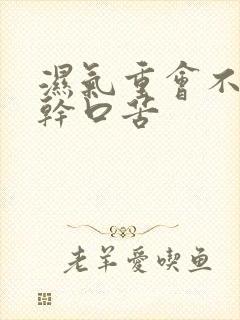 濕氣重會不
幹口苦
老羊愛喫魚